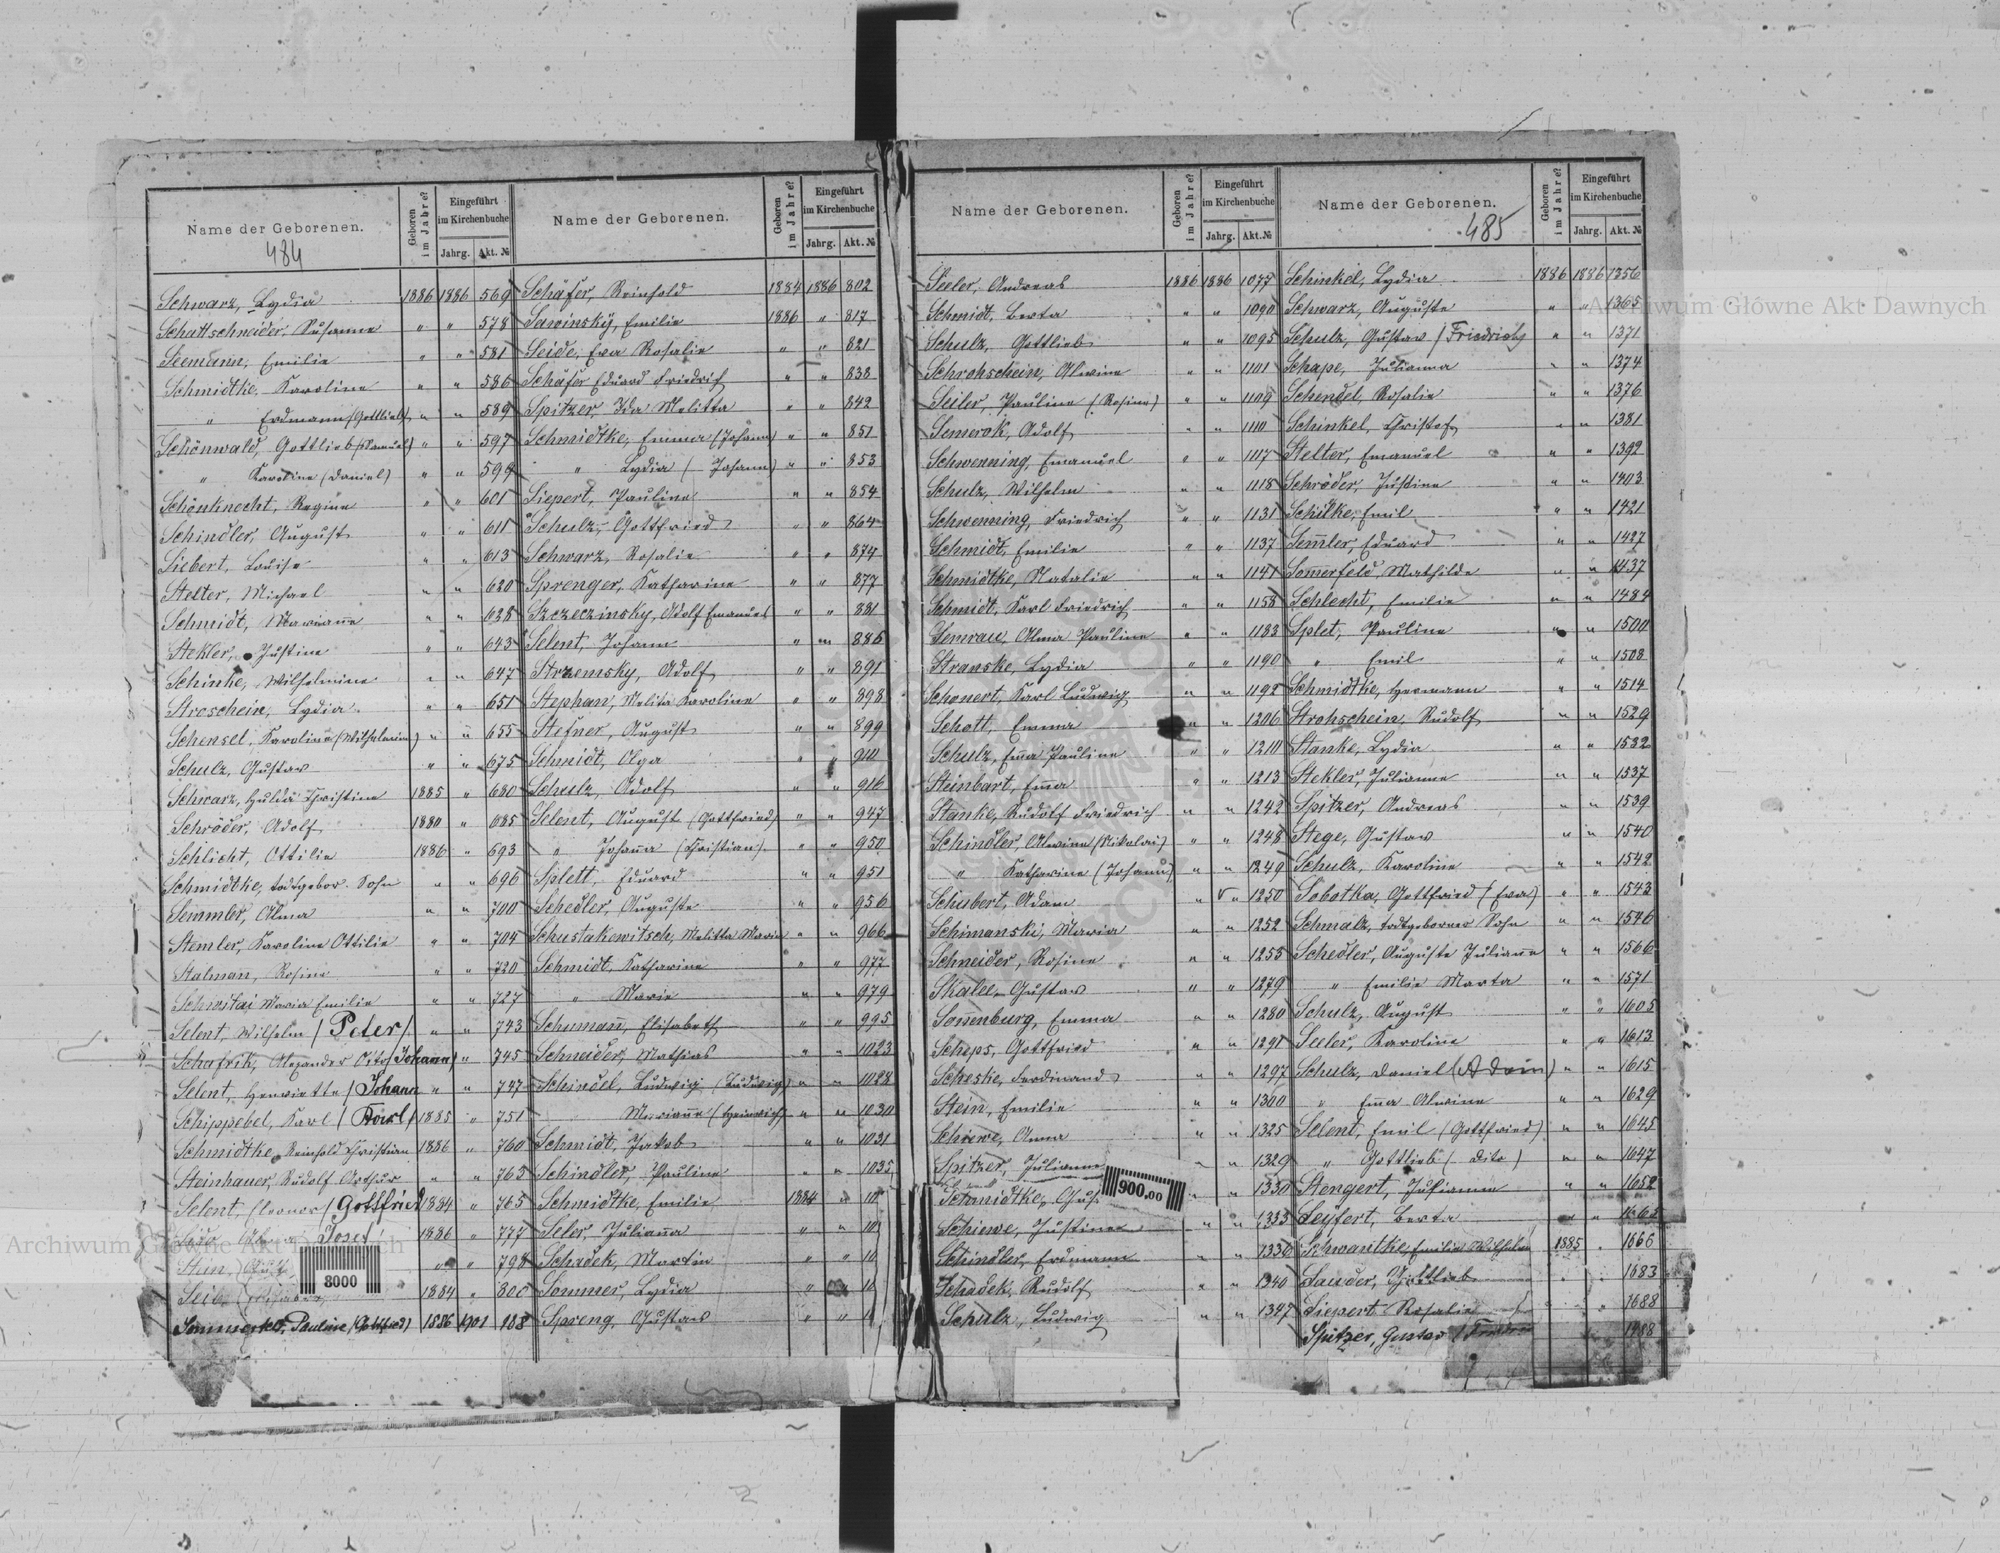 Name der Geborenen.
484
Geboren im Jahre?
Eingeführt im Kirchenbuche
Jahrg. Akt. №
Schwarz, Lydia 1886 1886 569
Schattschneider, Susanne " " 578
Seemann, Emilie " " 581
Schmidtke, Karoline " " 586
" Erdmann (Gottlieb) " " 589
Schönwald, Gottlieb (Samuel) " " 597
" Karoline (Daniel) " " 599
Schönknecht, Regine " " 601
Schindler, August " " 611
Siebert, Louise " " 613
Stelter, Michael " " 620
Schmidt, Marianne " " 628
Stekler, Justine " " 643
Schinke, Wilhelmine " " 647
Stroschein, Lydia " " 651
Schensel, Karoline (Wilhelmine) " " 655
Schulz, Gustav " " 675
Schwarz, Hulda Christine 1885 " 680
Schröder, Adolf 1880 " 685
Schlicht, Ottilie 1886 " 693
Schmidtke, todtgebor. Sohn " " 696
Semmler, Alma " " 700
Stemler, Karoline Ottilie " " 704
Stalman, Rosine " " 720
Schwitai Maria Emilie " " 727
Selent, Wilhelm / Peter /. " " 743
Schafrik, Alexander Otto / Johann) " 745
Selent, Henriette / Johann " " 747
Schippebel, Karl / Karl / 1885 " 751
Schmidtke, Reinhold Christian 1886 " 760
Steinhauer, Rudolf Arthur " " 763
Selent, Eleonor / Gottfried 1884 " 765
Josef 1886 " 777
" " 798
1884 " 800
Pauline (Gottfried) 1886 1901 188
8000
Name der Geborenen.
Geboren im Jahre?
Eingeführt im Kirchenbuche
Jahrg. Akt. №
Schäfer, Reinhold 1884 1886 802
Sawinsky, Emilie 1886 " 817
Seide, Eva Rosalie " " 821
Schäfer Eduard Friedrich " " 838
Spitzer, Ida Melitta " " 842
Schmidtke, Emma (Johann) " " 851
" Lydia (Johann) " " 853
Siepert, Pauline " " 854
Schulz, Gottfried " " 864
Schwarz, Rosalie " " 874
Sprenger, Katharine " " 877
Szczeczinsky, Adolf Emanuel " " 881
Selent, Johann " " 886
Strzemsky, Adolf " " 891
Stephan, Melita Karoline " " 898
Stefner, August " " 899
Schmidt, Olga " " 910
Schulz, Adolf " " 916
Selent, August (Gottfried) " " 947
" Johanna (Christian) " " 950
Splett, Eduard " " 951
Schedler, Auguste " " 956
Schustakowitsch, Melitta Marie " " 966
Schmidt, Katharine " " 977
" Marie " " 979
Schumann, Elisabeth " " 995
Schneider, Mathias " " 1023
Schindel, Ludwig (Ludwig) " " 1028
Marianne (Heinrich) " " 1030
Schmidt, Jakob " " 1031
Schindler, Pauline " " 1035
Schmidtke, Emilie 1884 " 10
Seler, Julianna " " 10
Schadek, Martin " " 10
Sommer, Lydia " 10
Spreng, Gustav " "
Name der Geborenen.
Geboren im Jahre?
Eingeführt im Kirchenbuche
Jahrg. Akt. №
Seeler, Andreas 1886 1886 1077
Schmidt, Berta " " 1090
Schulz, Gottlieb " " 1095
Schrohschein, Alwine " " 1101
Seiler, Pauline (Rosine) " " 1109
Semerok, Adolf " " 1110
Schwenning, Emanuel " " 1117
Schulz, Wilhelm " " 1118
Schwenning, Friedrich " " 1131
Schmidt, Emilie " " 1137
Schmidtke, Natalie " " 1141
Schmidt, Karl Friedrich " " 1158
Semrau, Alma Pauline " " 1183
Stranske, Lydia " " 1190
Schonert, Karl Ludwig " " 1192
Schott, Emma " " 1206
Schulz, Emma Pauline " " 1210
Steinbart, Emma " " 1213
Stanke, Rudolf Friedrich " " 1242
Schindler, Alwine (Nikolai) " " 1248
" Katharine (Johann) " " 1249
Schubert, Adam " " 1250
Schimanski, Maria " " 1252
Schneider, Rosine " " 1255
Skalec, Gustav " " 1279
Sonnenburg, Emma " " 1280
Scheps, Gottfried " " 1291
Scheske, Ferdinand " " 1297
Stein, Emilie " " 1300
Schiewe, Anna " " 1325
Spitzer, Julianne " " 1329
Schmidtke, " 1330
Schiewe, Justine " " 1333
Schindler, Erdmann " " 1336
Schadek, Rudolf " " 1340
Schulz, Ludwig " " 1347
900.00
Name der Geborenen.
485
Geboren im Jahre?
Eingeführt im Kirchenbuche
Jahrg. Akt. №
Schinkel, Lydia 1886 1886 1356
Schwarz, Auguste " " 1365
Schulz, Gustav / Friedrich) " " 1371
Schape, Julianna " " 1374
Schendel, Rosalie " " 1376
Schinkel, Christof " " 1381
Stelter, Emanuel " " 1392
Schröder, Justine " " 1403
Schilke, Emil " " 1421
Semler, Eduard " " 1427
Somerfeld, Mathilde " " 1437
Schlecht, Emilie " " 1484
Splet, Pauline " " 1500
" Emil " " 1508
Schmidtke, Hermann " " 1514
Strohschein, Rudolf " " 1529
Stanke, Lydia " " 1532
Stekler, Julianne " " 1537
Spitzer, Andreas " " 1539
Stege, Gustav " " 1540
Schulz, Karoline " " 1542
Sobotka, Gottfried (Eva) " " 1543
Schmalz, todtgeborner Sohn " " 1546
Schedler, Auguste Julianne " " 1566
" Emilie Marta " " 1571
Schulz, August " " 1605
Seeler, Karoline " " 1613
Schulz, Daniel (Adam) " " 1615
" Emma Alwine " " 1629
Selent, Emil (Gottfried) " " 1645
" Gottlieb (dito) " " 1647
Stengert, Julianna " " 1652
Seyfert, Berta " "
Schwantke, Emilie Wilhelm 1885 " 1666
Sauder, Gottlieb " " 1683
Siepert Rosalie " " 1688
Spitzer, Gustav
Archiwum Główne Akt Dawnych
Archiwum Główne Akt Dawnych